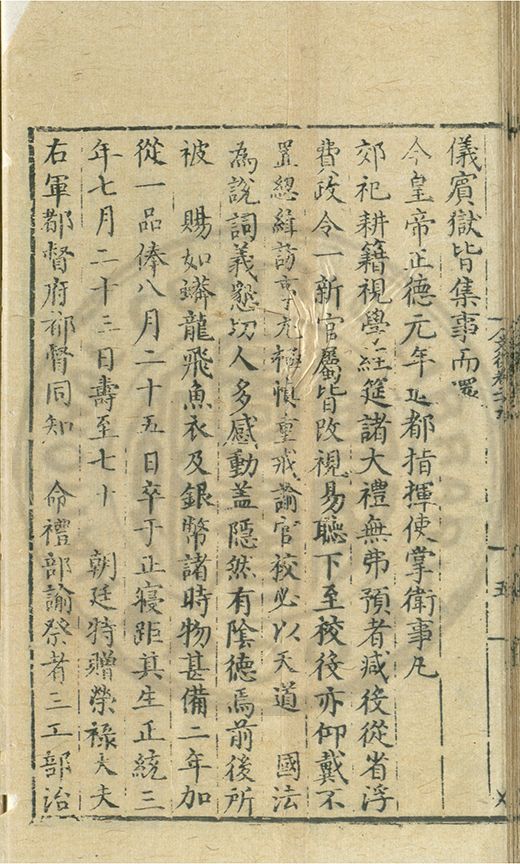 儀賓獄皆集事而還
今皇帝正德元年止都指揮使掌衛事凡
郊祀耕籍視學經筵諸大禮無弗預者減後從省浮
費政令一新官屬皆改視易聽下至校後亦仰戴不
置總緝訪事尤稱慎重戒諭官校必以天道　國法
為説詞義懇切人多感動盖隠然有隂德焉前後所
被　賜如蟒龍飛魚衣及銀幣諸時物甚備二年加
從一品俸八月二十五日卒于正寝距其生正統三
年七月二十三日壽至七十　朝廷特贈榮禄大夫
右軍都督府都督同知　命禮部諭祭者三工部治
五